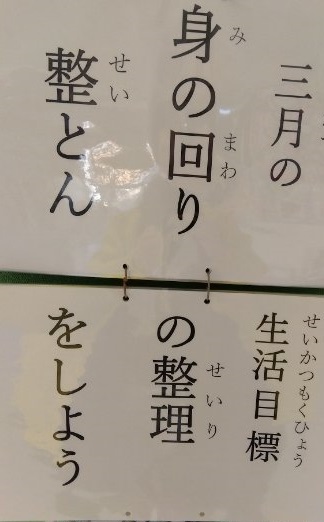 三月の
生活目標
せいかつもくひょう
身の回り
み まわ
の整理
せいり
整とん
せい
をしよう